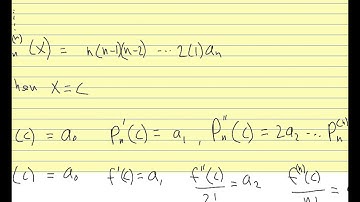 (n)
n (X) = n(n-1)(n-2) ... 2(1)an
hen X=C
(c) = a₀ Pn'(c) = a₁, Pn''(c) = 2a₂ ... Pn(n)
(c) = a₀ f'(c) = a₁ f''(c)/2! = a₂ f(n)(c)/n! =